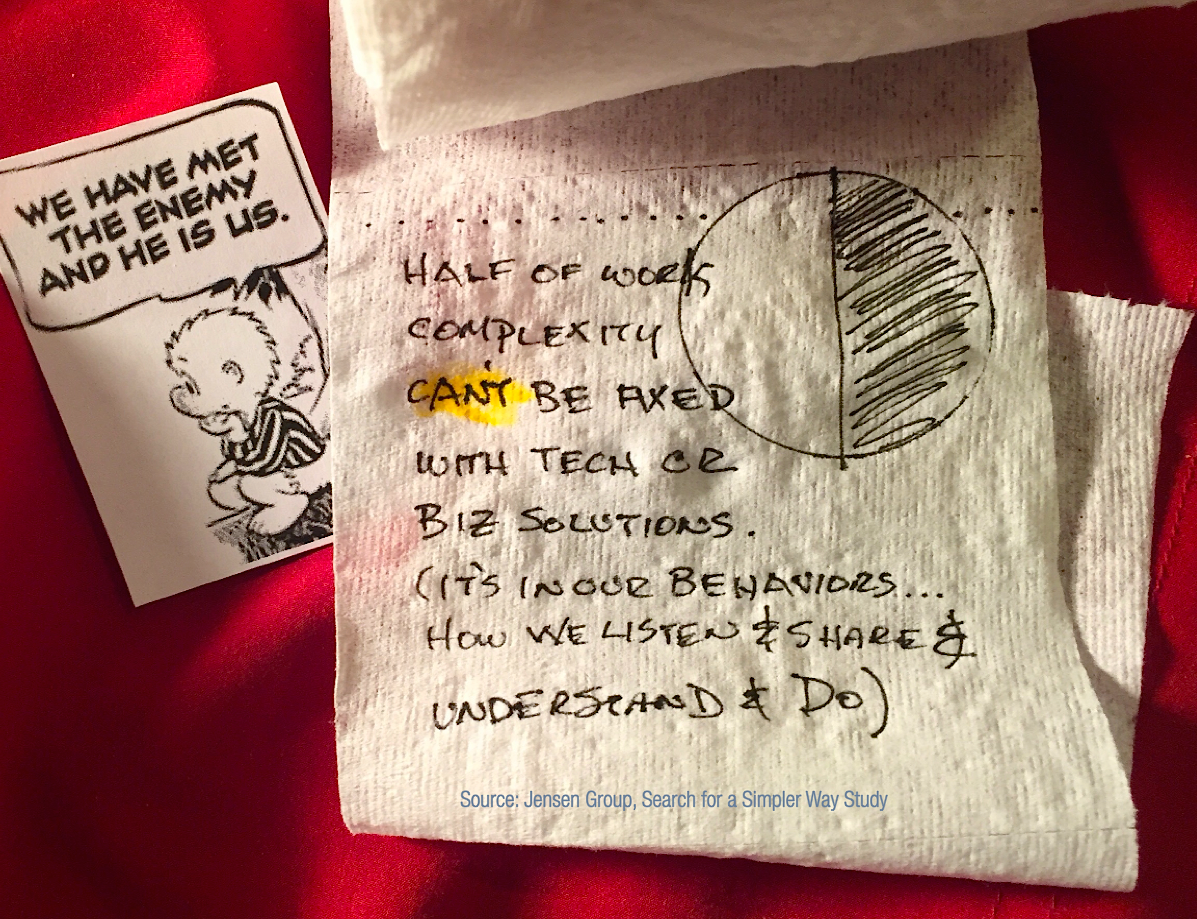 WE HAVE MET
THE ENEMY
AND HE IS US.
HALF OF WORK
COMPLEXITY
CAN'T BE FIXED
WITH TECH OR
BIZ SOLUTIONS.
(IT'S IN OUR BEHAVIORS...
HOW WE LISTEN & SHARE &
UNDERSTAND & DO)
Source: Jensen Group, Search for a Simpler Way Study